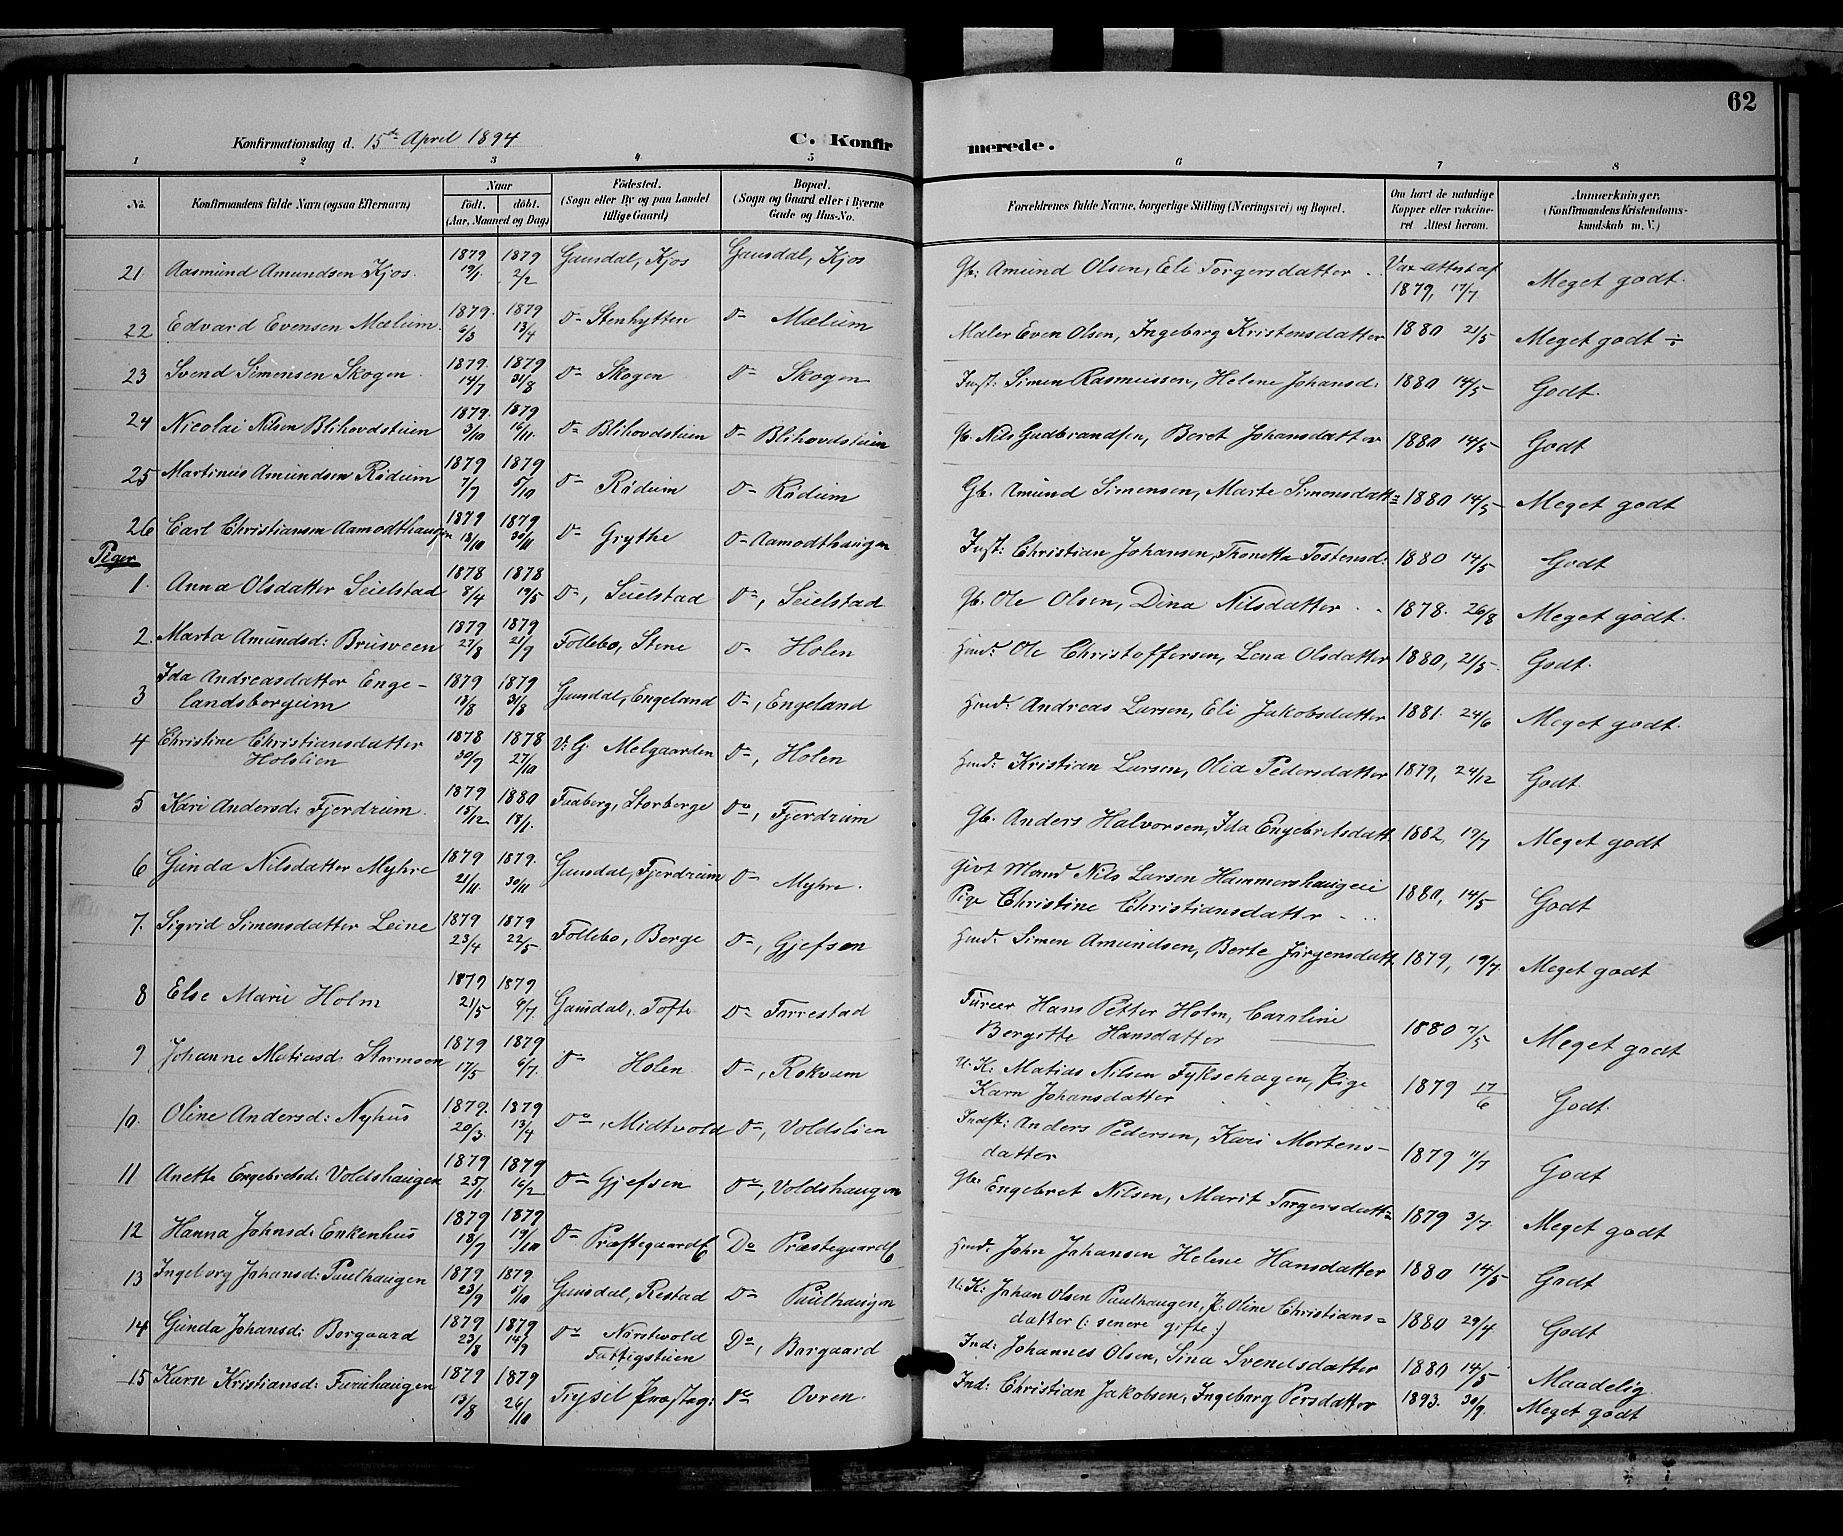 62
Konfirmationsdag d. 15de April 1894
C. Konfirmerede.
1 2 3 4 5 6 7 8
No. Konfirmandens fulde Navn (ogsaa Efternavn) Naar født. døbt. (Aar, Maaned og Dag) Födested. (Sogn eller By og paa Landet tillige Gaard) Bopæl. (Sogn og Gaard eller i Byerne Gade og Hus-No. Forældrenes fulde Navne, borgerlige Stilling (Næringsvei) og Bopæl. Om havt de naturlige Kopper eller vakcineret Attest herom. Anmærkninger. (Konfirmandens Kristendomskundskab m. V.)
21 Aasmund Amundsen Kjos. 1879 19/1 1879 2/2 Gausdal, Kjos Gausdal, Kjos Gb: Amund Olsen, Eli Torgersdatter Vax attest af 1879, 17/7 Meget godt.
22 Edvard Evensen Mælum. 1879. 6/3 1879 13/4 Do Stenhytten Do Mælum Maler Even Olsen, Ingeborg Kristensdatter 1880 21/5 Meget godt ÷
23 Svend Simensen Skogen. 1879. 14/7 1879 31/8 Do Skogen Do Skogen Inst: Simen Rasmussen, Helene Johansd: 1880 14/5 Godt.
24 Nicolai Nilsen Blihovdstuen 1879. 3/10 1879 16/11. Do Blihovdstuen Do Blihovdstuen Gb. Nils Gudbrandsen, Beret Johansdatter 1880 14/5 Godt
25 Martinus Amundsen Rødum 1879 7/9 1879 5/10 Do Rødum Do Rødum Gb. Amund Simensen, Marte Simensdatt= 1880 14/5 Meget godt
26 Carl Christiansen Aamodthaugen 1879 18/10 1879 30/11 Do Grythe Do Aamodthaugen Inst: Christian Johansen, Thonetta Tostensd. 1880 14/5 Godt
Piger
1. Anna Olsdatter Seielstad 1878 8/4 1878 19/5 Do, Seielstad Do, Seielstad Gb. Ole Olsen, Dina Nilsdatter 1878. 26/8 Meget godt.
2. Marta Amundsd: Brusveen 1879 27/8 1879 21/9 Follebo, Stene Do Holen Husd. Ole Christoffersen, Lena Olsdatter 1880, 21/5 Godt.
3 Ida Andreasdatter Enge-
landsborgum 1879 13/8 1879 31/8 Gausdal, Engeland Do, Engeland Husd. Andreas Larsen, Eli Jakobsdatter 1881. 24/6 Meget godt.
4 Christine Christiansdatter
Holslien 1878 30/7 1878 27/10 V: G. Melgaarden Do, Holen Husd: Kristian Larsen, Olia Pedersdatter 1879, 24/12 Godt.
5 Kari Andersd: Fjerdrum. 1879 15/12 1880 18/1. Faaberg, Storberge Do, Fjerdrum Gb. Anders Halvorsen, Ida Engebretsdatt. 1882, 19/7 Meget godt
6 Gunda Nilsdatter Myhre 1879 21/11. 1879. 30/11 Gausdal, Fjerdrum Do Myhre. Givt Mand Nils Larsen Hammershaugen
Pige Christine Christiansdatter 1880, 14/5 Godt
7. Sigrid Simensdatter Leine 1879 23/4 1879 22/5 Follebo, Berge Do, Gjefsen Husd. Simen Amundsen, Berte Jörgensdatt. 1879, 19/7. Meget godt
8 Else Marie Holm 1879 21/5 1879 6/7 Gausdal, Tofte Do Forrestad Furer Hans Petter Holm, Caroline
Bergitte Hansdatter 1880 7/5 Meget godt
9 Johanne Matiasd. Stormoen 1879 17/5 1879 6/7. Do Holen Do, Rokvam U. K: Matias Nilsen Fyksehagen, Pige
Karn Johansdatter 1879 17/6 Godt.
10. Oline Andersd: Nyhus 1879. 20/3. 1879 13/4 Do, Midtvold Do, Voldslien Indst: Anders Pedersen, Kari Mortens-
datter 1879 11/7 Godt
11 Anette Engebretsd: Voldshaugen 1879 25/1 1879 16/2 Do Gjefsen Do, Voldshaugen Gb. Engebret Nilsen, Marit Torgersdatt= 1879 3/7. Meget godt
12 Hanna Johnsd: Enkenhus 1879 18/7 1879 19/10 Do Præstegaard Do Præstegaard Husd. John Johansen Helene Hansdatter 1880 14/5 Godt
13 Ingeborg Johansd: Paulhaugen 1879 23/9 1879. 5/10 Gausdal, Restad Do Paulhaugen U. K: Johan Olsen Paulhaugen, P. Oline Christians=
datter (: senere gifte :) 1880 29/4 Godt
14 Gunda Johansd: Borgaard 1879 23/8 1879 14/9 Do Nørstvold
Fattigstuen Do, Borgaard Ind: Johannes Olsen, Sina Svendsdatter 1880 14/5 Maadelig
15 Karn Kristiansd: Furuhaugen 1879 13/8 1879 26/10 Trysil Præsteg: Do Ovren Ind: Christian Jakobsen, Ingeborg Persdatter 1893. 30/9. Meget godt